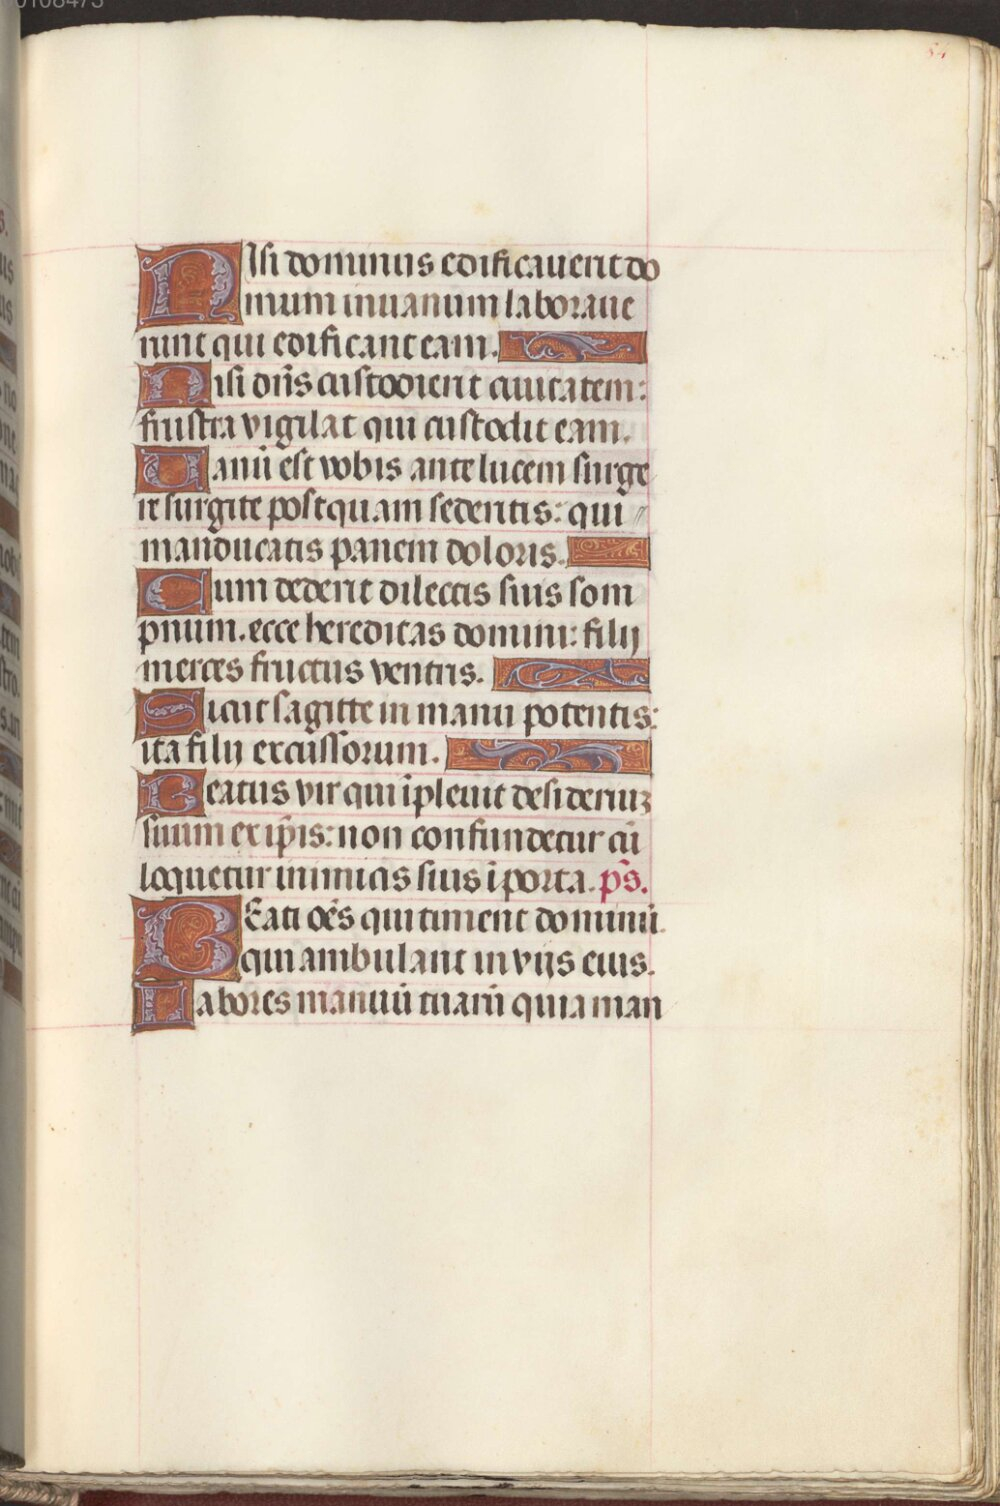 54
Nisi dominus edificauerit do
mum inuanum laboraue
runt qui edificant eam.
Nisi dn̄s custodierit ciuitatem:
frustra vigilat qui custodit eam.
Uanū est vobis ante lucem surge
re surgite postquam sederitis: qui
manducatis panem doloris.
Cum dederit dilectis suis som
pnum. ecce hereditas domini: filij
merces fructus ventris.
Sicut sagitte in manu potentis:
ita filij excussorum.
Beatus vir qui īpleuit desideriuʒ
suum ex ip̄is: non confundetur cū
loquetur inimicis suis ī porta. ps̄.
BEati oēs qui timent dominū.
qui ambulant in vijs eius.
Labores manuū tuarū quia man